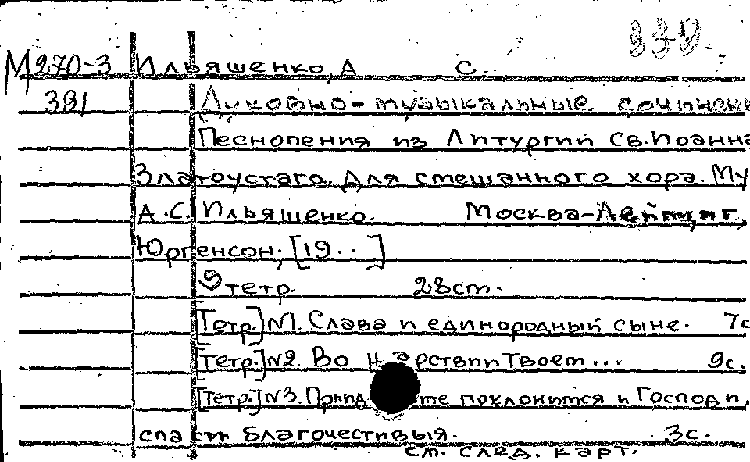 М270-3 Ильяшенко, А С.
381 Духовно-музыкальные сочинен
Песнопения из Литургии Св. Иоанна
Златоустаго. Для смешанного хора. Му
А.С. Ильяшенко. Москва-Лейпциг,
Юргенсон, [19..]
9 тетр. 28 ст.
[Тетр.] №1. Слава и единородный сыне. 7с
[Тетр.] №2. Во Твоем... 9с.
[Тетр.] №3. поклонится и Господи,
спаси благочестивыя. 3с.
см. след. карт.